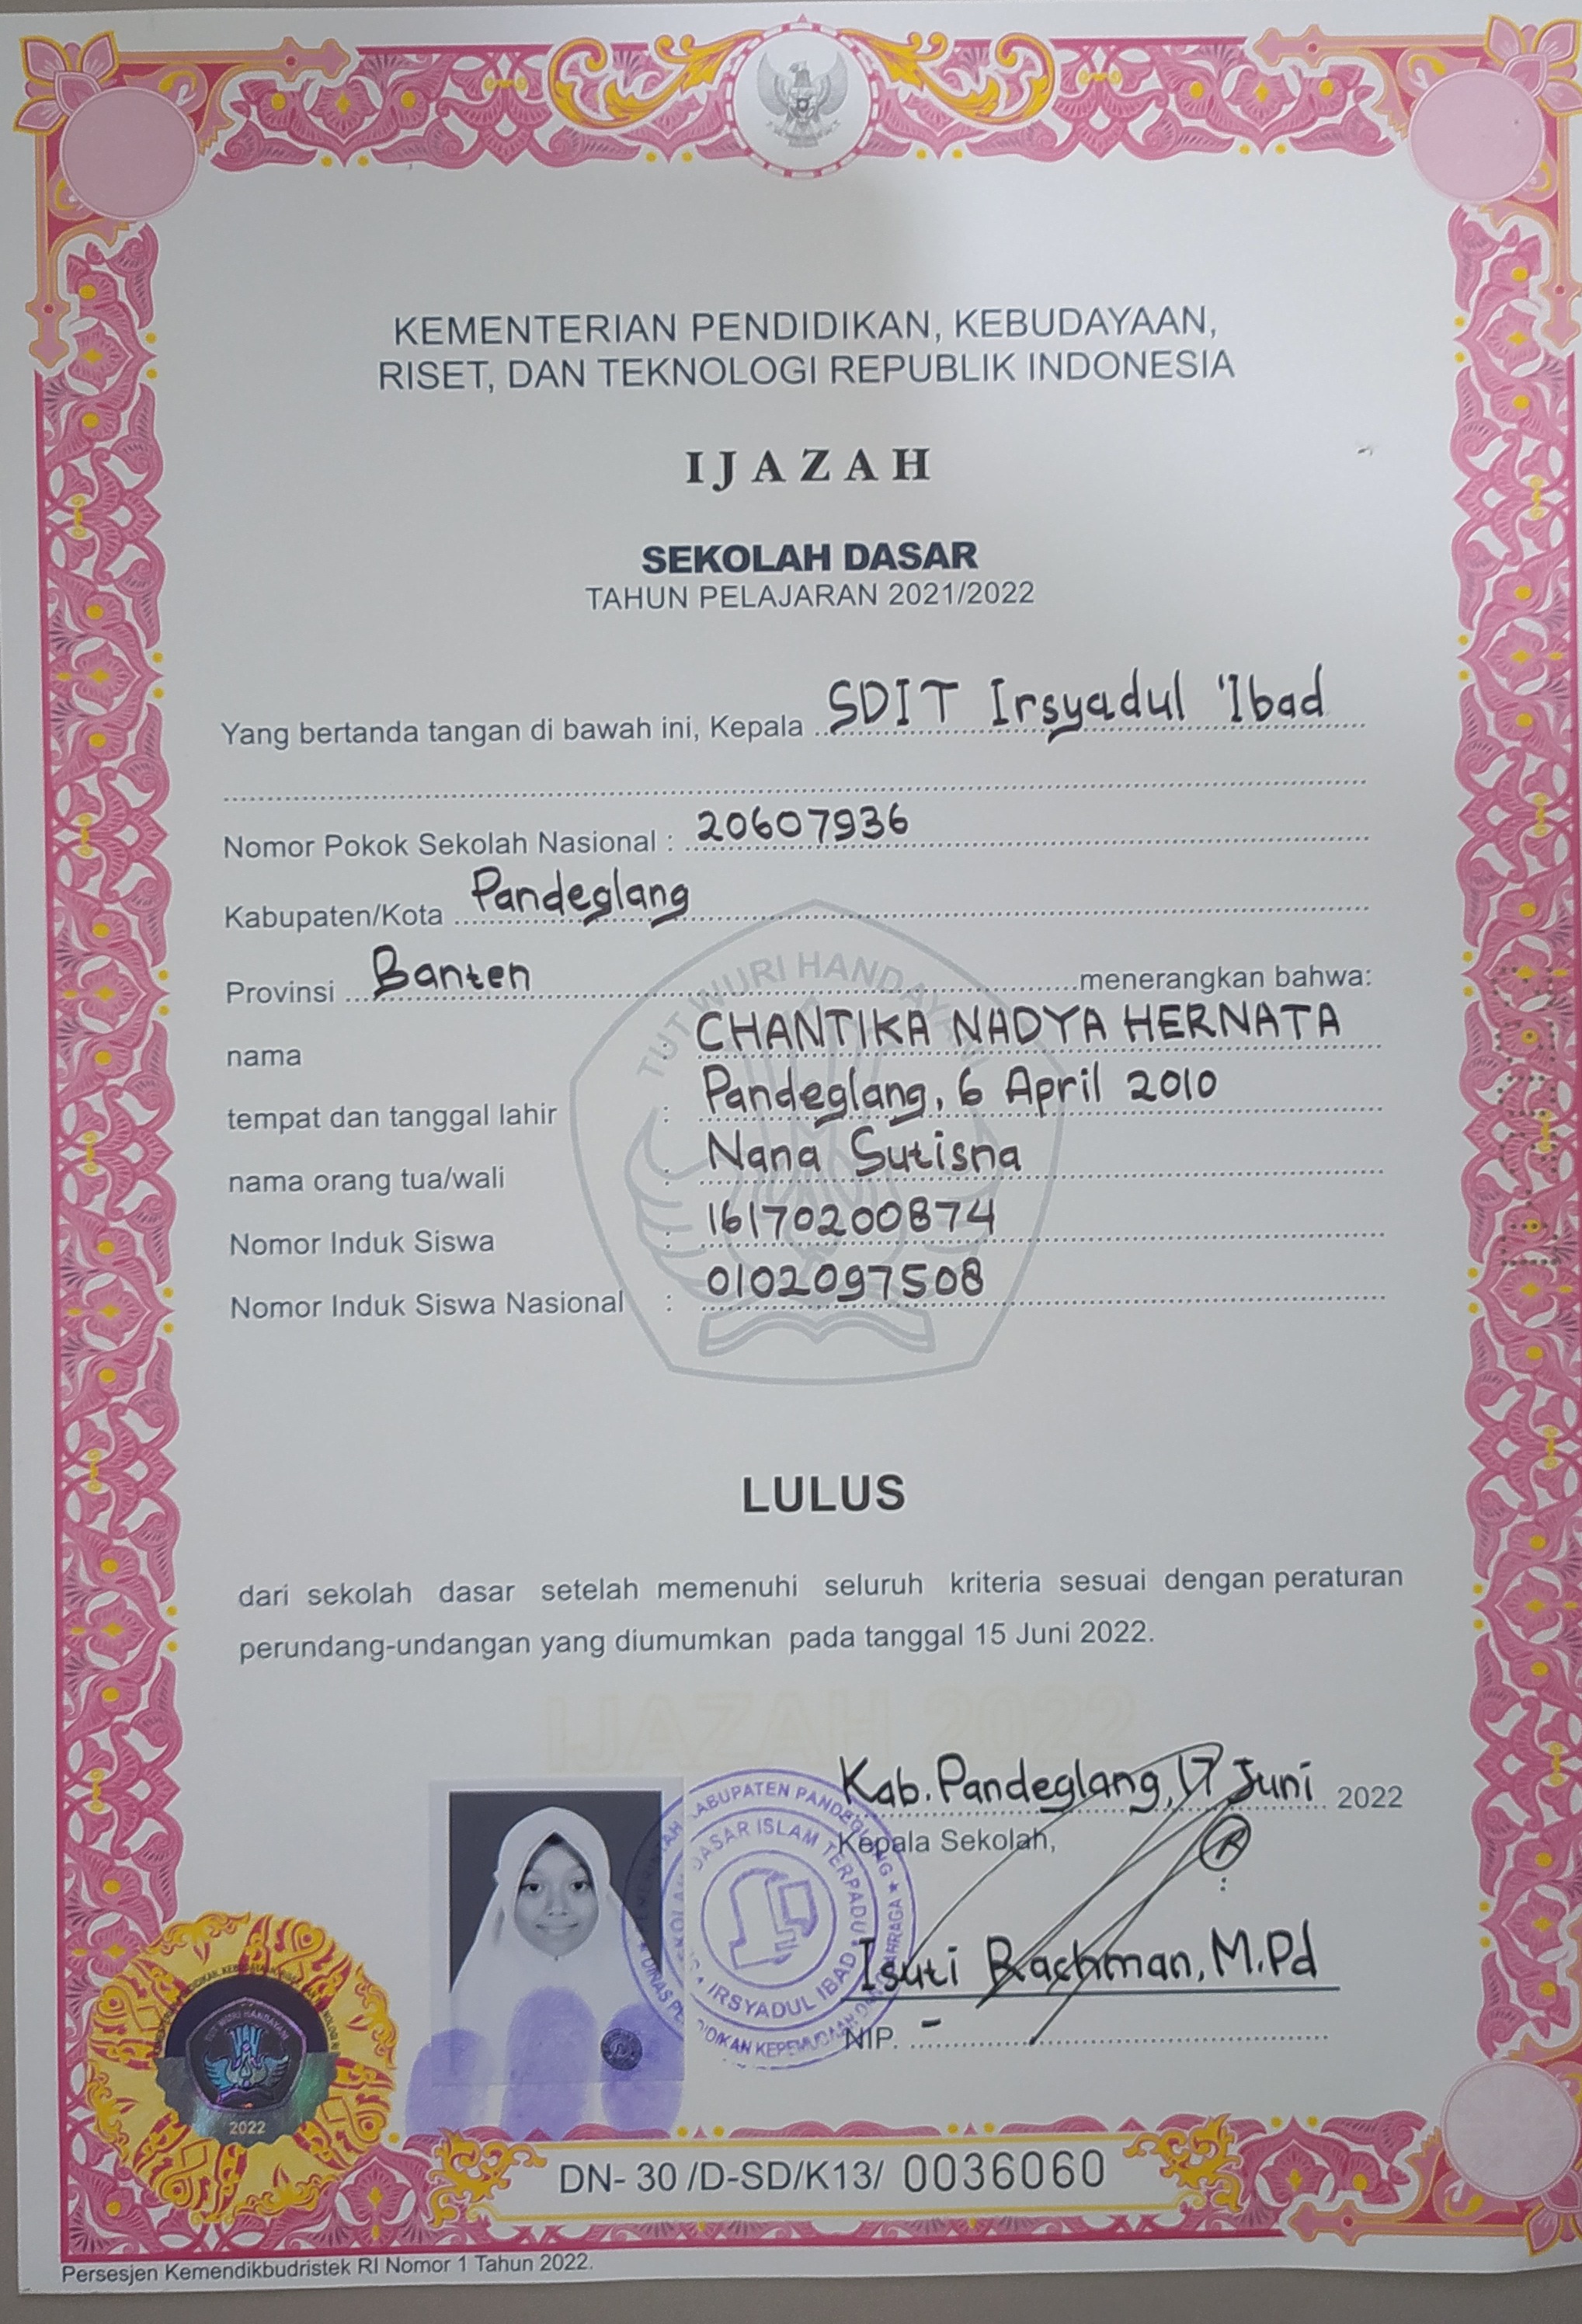 KEMENTERIAN PENDIDIKAN, KEBUDAYAAN,
RISET, DAN TEKNOLOGI REPUBLIK INDONESIA
IJAZAH
SEKOLAH DASAR
TAHUN PELAJARAN 2021/2022
Yang bertanda tangan di bawah ini, Kepala SDIT Irsyadul 'Ibad
Nomor Pokok Sekolah Nasional : 20607936
Kabupaten/Kota Pandeglang
Provinsi Banten menerangkan bahwa:
TUT WURI HANDAYANI
nama : CHANTIKA NADYA HERNATA
tempat dan tanggal lahir : Pandeglang, 6 April 2010
nama orang tua/wali : Nana Sutisna
Nomor Induk Siswa : 16170200874
Nomor Induk Siswa Nasional : 0102097508
LULUS
dari sekolah dasar setelah memenuhi seluruh kriteria sesuai dengan peraturan
perundang-undangan yang diumumkan pada tanggal 15 Juni 2022.
IJAZAH 2022
Kab. Pandeglang, 17 Juni 2022
Kepala Sekolah,
KABUPATEN PANDEGLANG
DASAR ISLAM TERPADU
IRSYADUL IBAD
Isuti Rachman, M.Pd
NIP. -
TUT WURI HANDAYANI
2022
DN- 30 /D-SD/K13/ 0036060
Persesjen Kemendikbudristek RI Nomor 1 Tahun 2022.